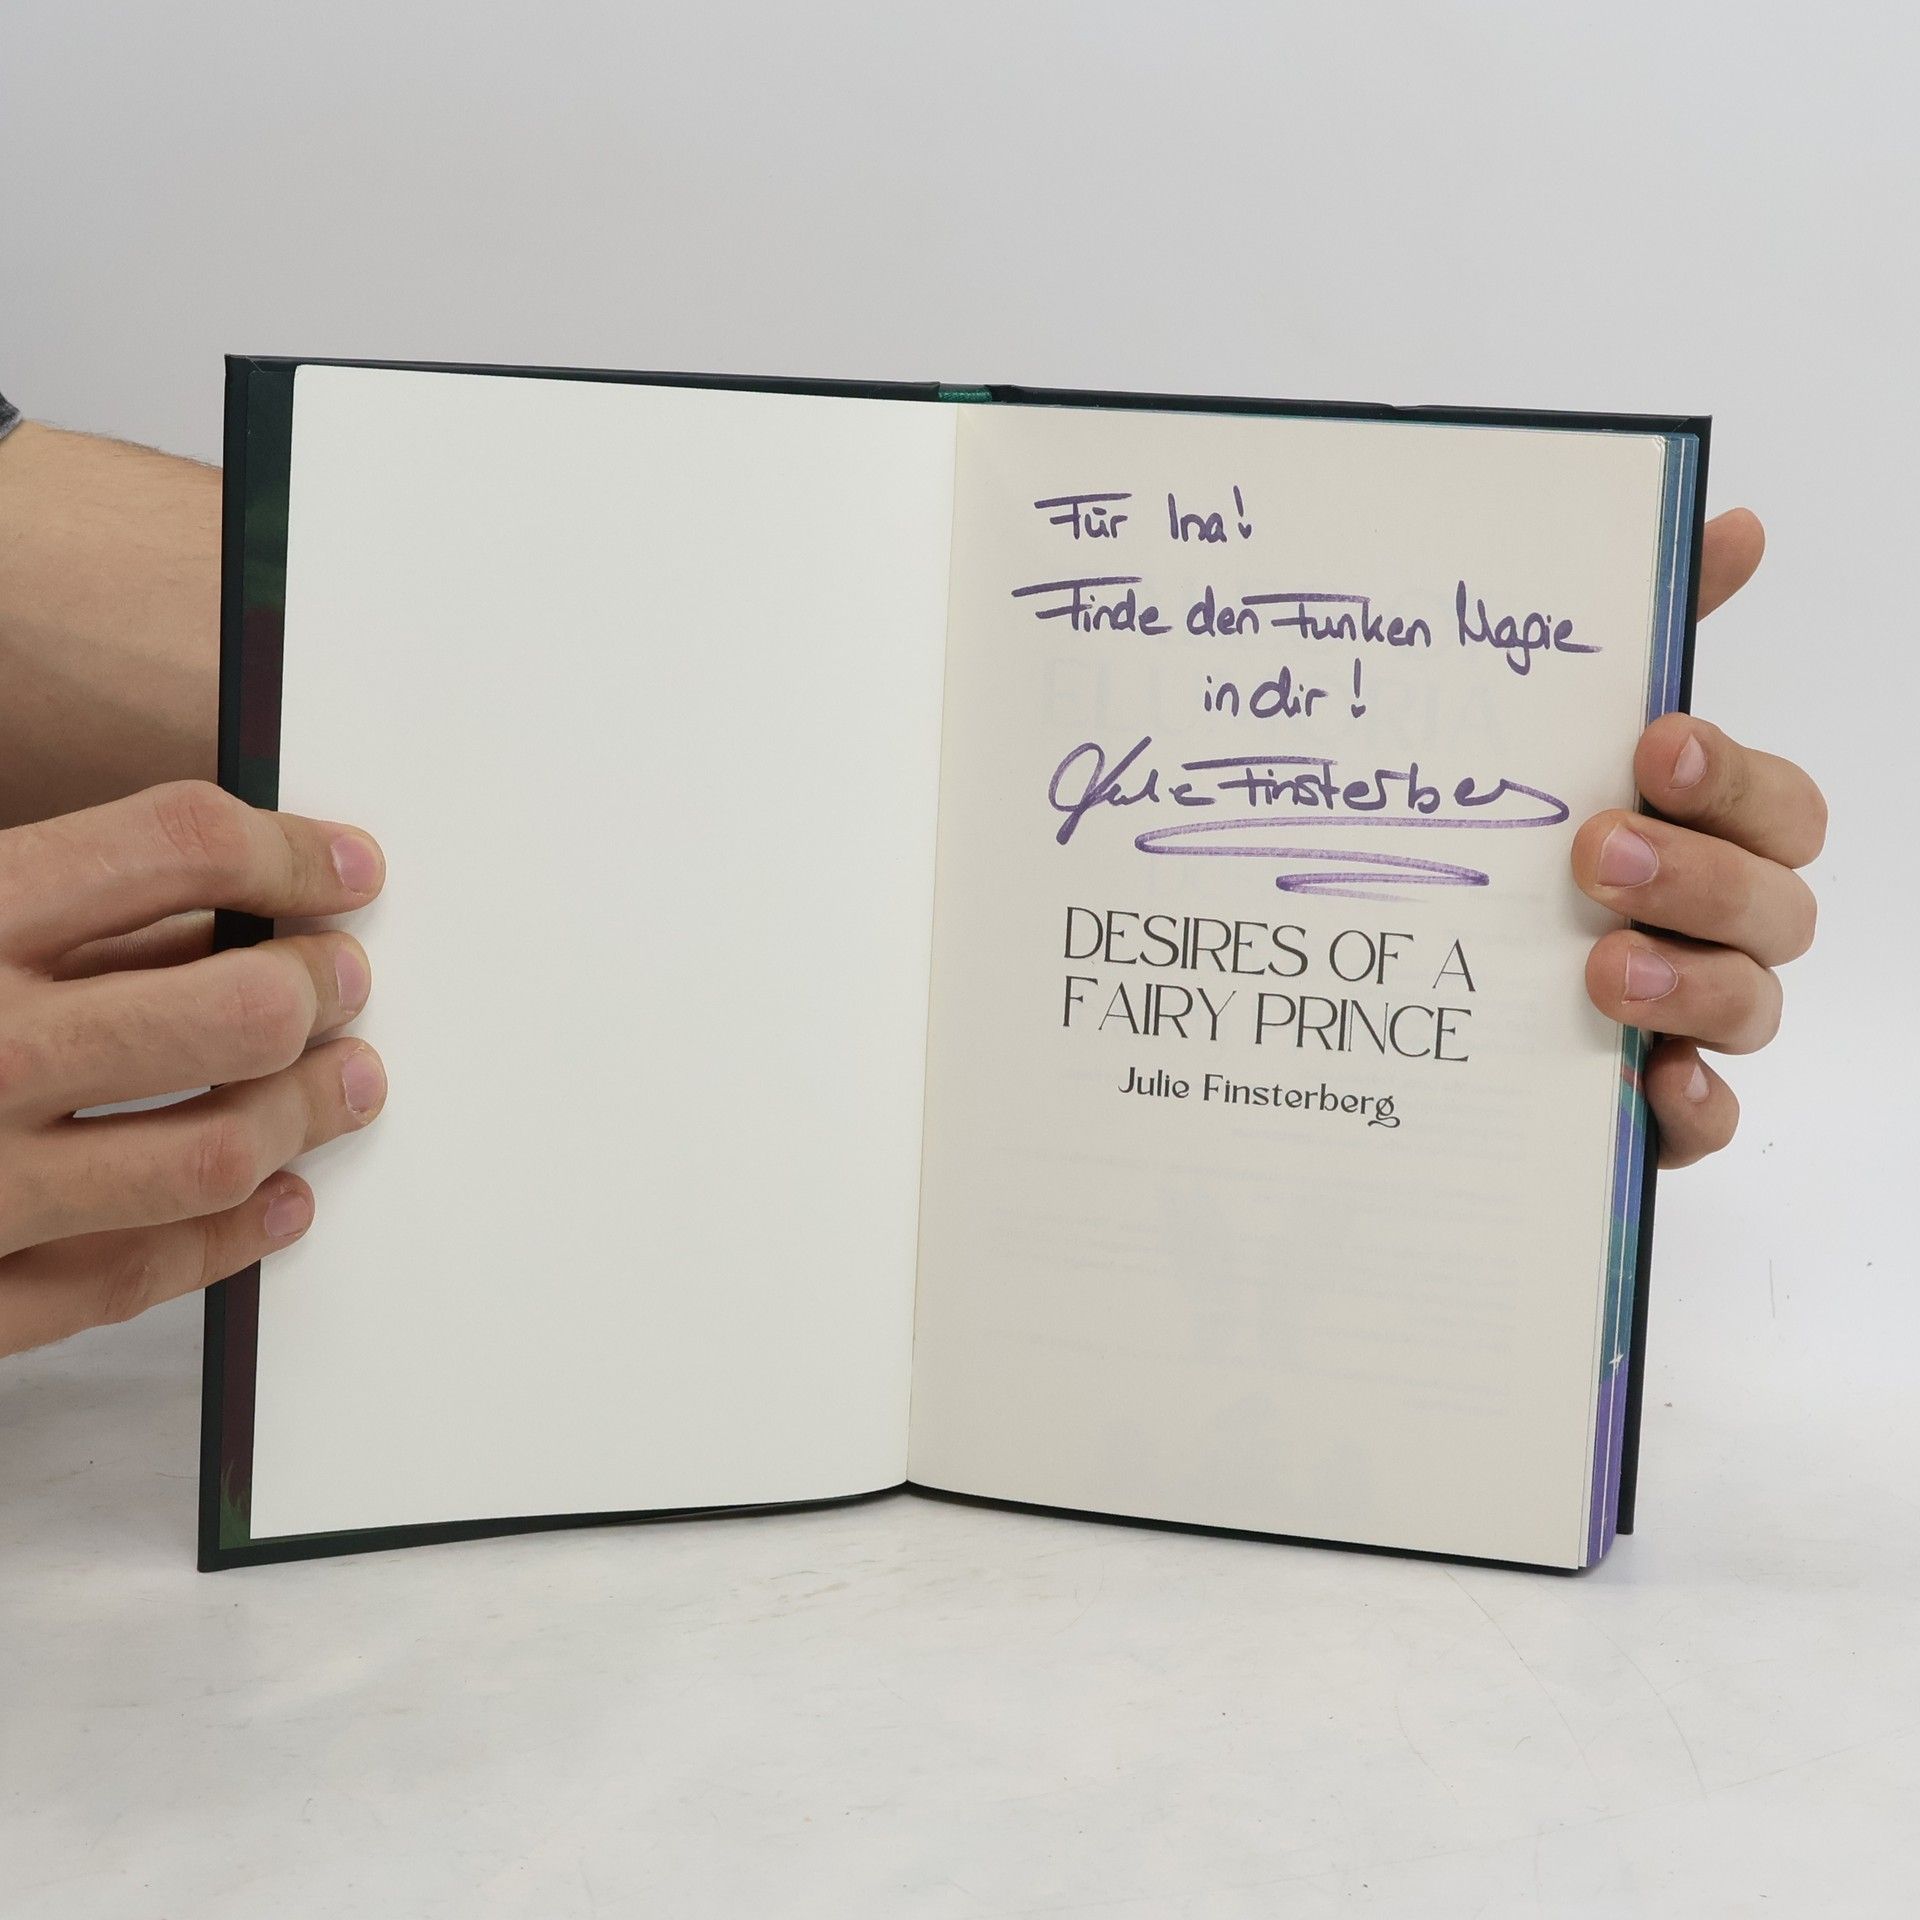 Für Ina!
Finde den Funken Magie
in dir!
Julie Finsterberg
DESIRES OF A
FAIRY PRINCE
Julie Finsterberg